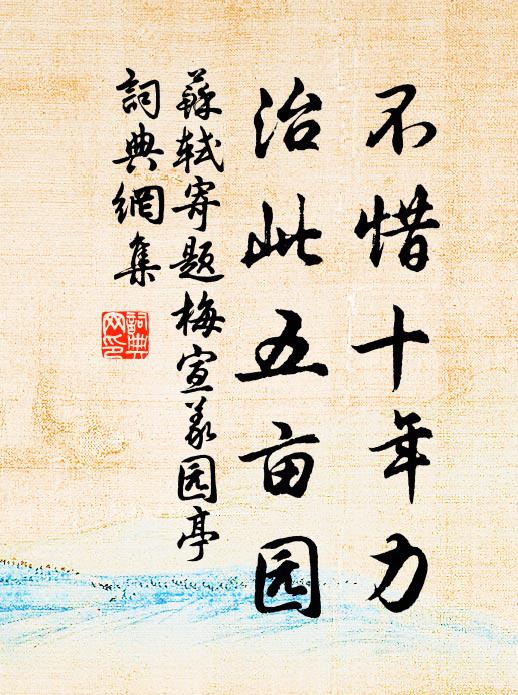 不惜十年力
治此五亩园
蘇轼寄题梅宣义园亭
詞典網集
詞典网印